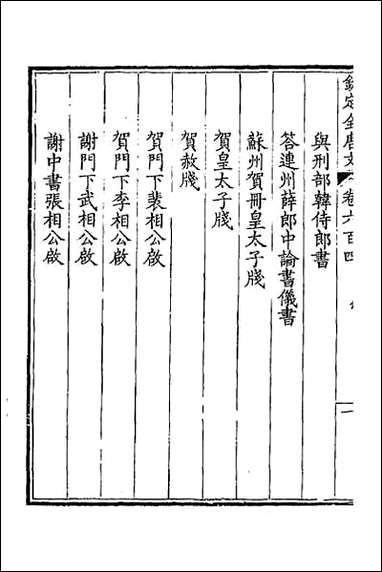 欽定全唐文 卷六百四
與刑部韓侍郎書
答連州薛郎中論書儀書
蘇州賀冊皇太子牋
賀皇太子牋
賀赦牋
賀門下裴相公啟
賀門下李相公啟
謝門下武相公啟
謝中書張相公啟
一